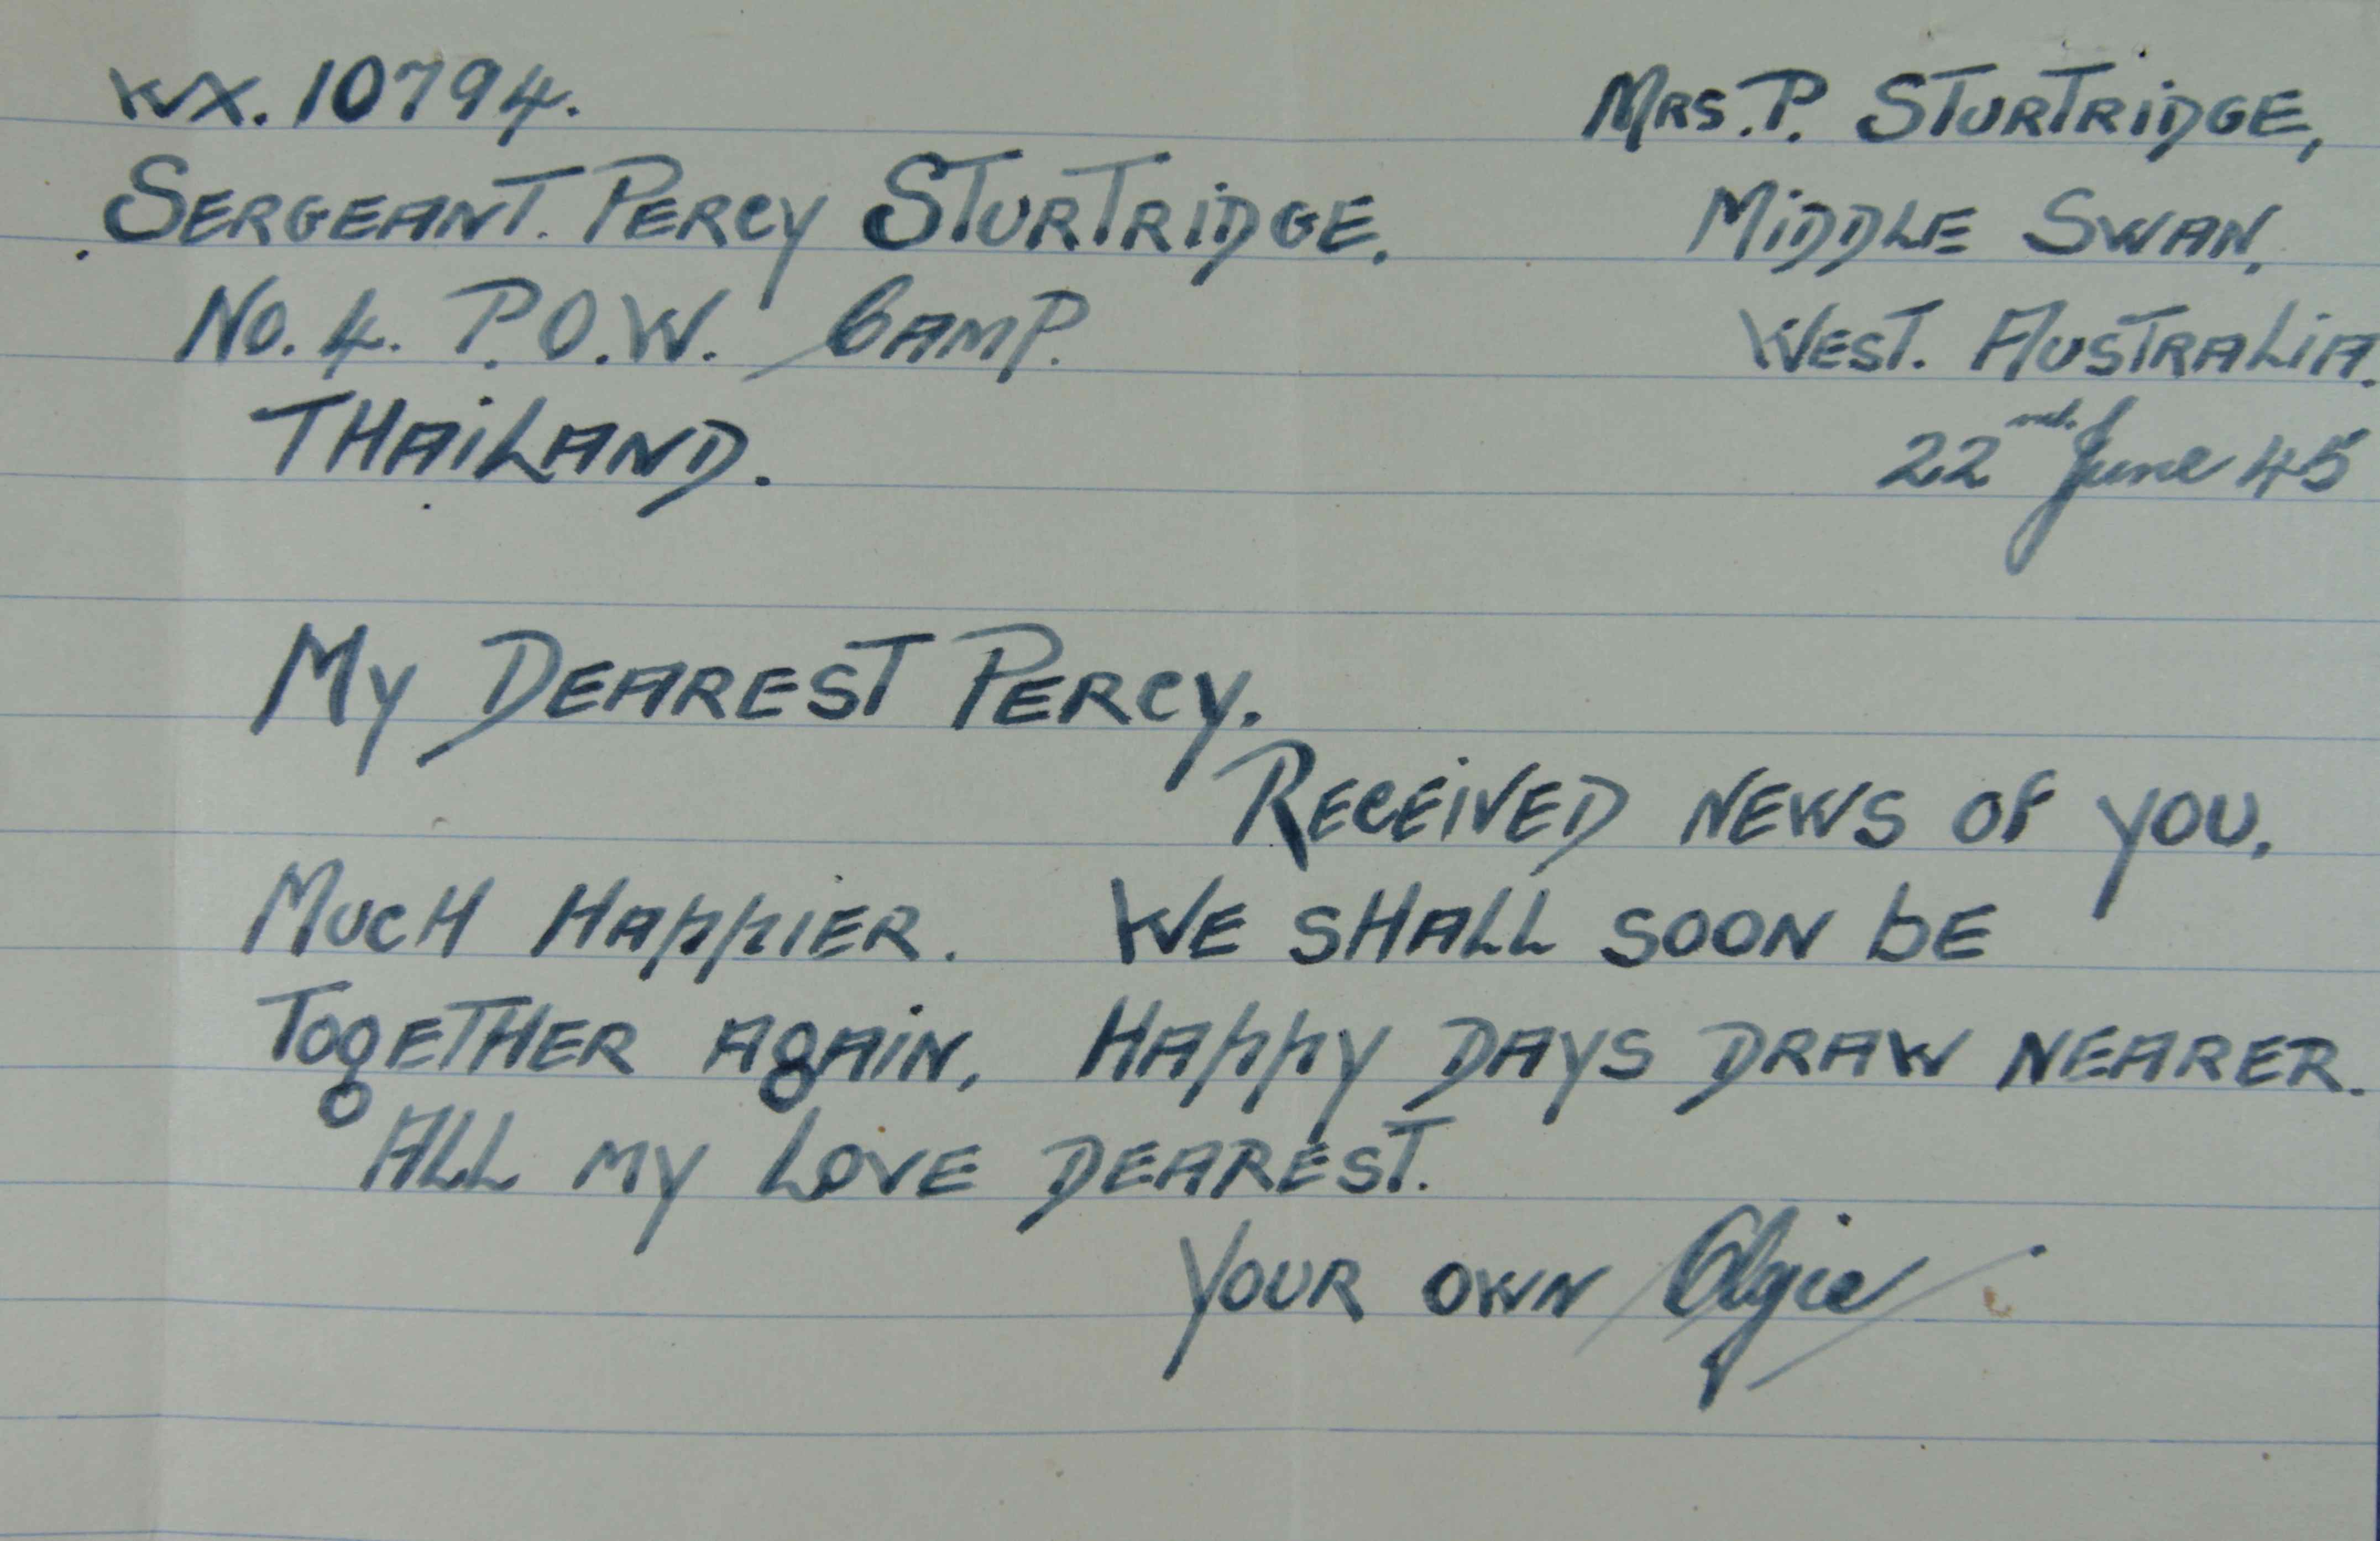 WX. 10794.
MRS. P. STURTRIDGE,
SERGEANT. PERCY STURTRIDGE.
MIDDLE SWAN,
No. 4. P.O.W. CAMP.
WEST. AUSTRALIA.
THAILAND.
22nd. June 45
MY DEAREST PERCY.
RECEIVED NEWS OF YOU.
MUCH HAPPIER. WE SHALL SOON bE
TOgETHER AgAIN. HAPPY DAYS DRAW NEARER.
ALL MY LOVE DEAREST.
YOUR OWN Olgie